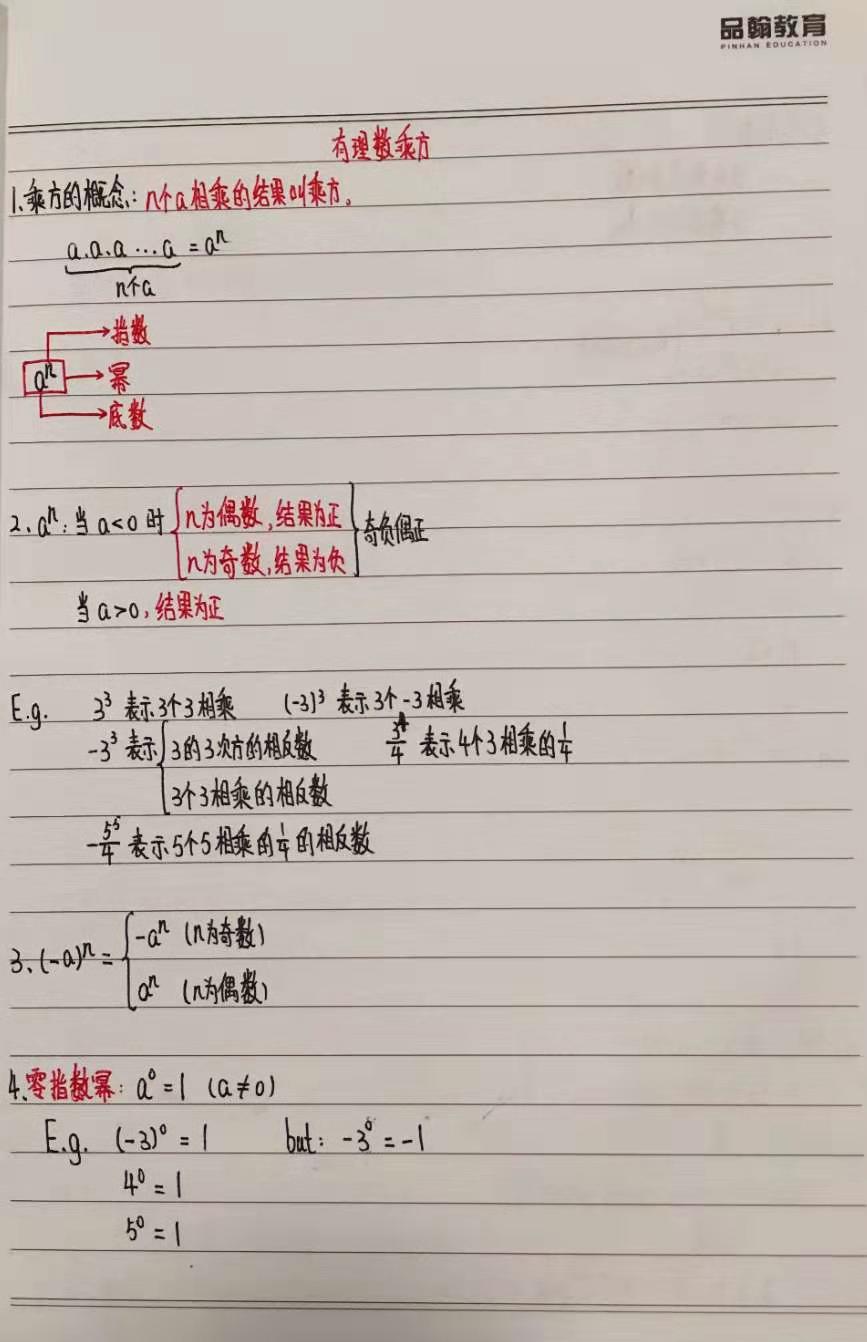 品翰教育
PINHAN EDUCATION
有理数乘方
1、乘方的概念：n个a相乘的结果叫乘方。
a·a·a···a = aⁿ
n个a
指数
aⁿ 幂
底数
2、aⁿ：当a<0时 n为偶数，结果为正 奇负偶正
n为奇数，结果为负
当a>0，结果为正
E.g. 3³ 表示3个3相乘 (-3)³ 表示3个-3相乘
-3³ 表示 3的3次方的相反数 3⁴/4 表示4个3相乘的1/4
3个3相乘的相反数
-5⁵/4 表示5个5相乘的1/4的相反数
3、(-a)ⁿ = -aⁿ (n为奇数)
aⁿ (n为偶数)
4、零指数幂：a⁰=1 (a≠0)
E.g. (-3)⁰ = 1 but：-3⁰ = -1
4⁰ = 1
5⁰ = 1